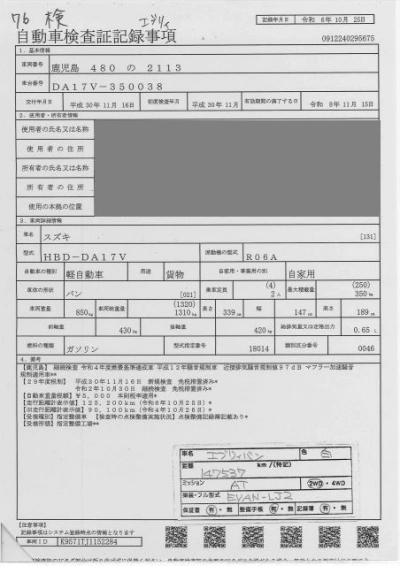 76 検 エブリイ
記録年月日 令和 6年10月25日
自動車検査証記録事項
0912240295675
1. 基本情報
車両番号 鹿児島 480 の 2113
車台番号 DA17V-350038
交付年月日 平成30年11月16日 初度検査年月 平成30年11月 有効期間の満了する日 令和 8年11月15日
2. 使用者・所有者情報
使用者の氏名又は名称
使用者の住所
所有者の氏名又は名称
所有者の住所
使用の本拠の位置
3. 車両詳細情報
車名 スズキ [131]
型式 HBD-DA17V 原動機の型式 R06A
自動車の種別 軽自動車 用途 貨物 自家用・事業用の別 自家用
車体の形状 バン [021] 乗車定員 (4) 2人 最大積載量 (250) 350kg
車両重量 850kg 車両総重量 (1320) 1310kg 長さ 339cm 幅 147cm 高さ 189cm
前軸重 430kg 後軸重 420kg 総排気量又は定格出力 0.65 L
燃料の種類 ガソリン 型式指定番号 18014 類別区分番号 0046
4. 備考
【鹿児島】 継続検査 令和4年度燃費基準達成車 平成12年騒音規制車 近接排気騒音規制値97dB マフラー加速騒音
規制適用車**
【29年度税制】 平成30年11月16日 新規検査 免税措置済み*
令和2年10月30日 継続検査 免税措置済み*
【自動車重量税額】 ¥5,000 本則税率適用*
【走行距離計表示値】 125,200km (令和6年10月25日)*
【旧走行距離計表示値】 90,100km (令和4年10月26日)*
【受検種別】 指定整備車 【検査時の点検整備実施状況】 点検整備記録簿記載あり*
【受検形態】 指定整備工場**
車名 エブリィバン 色 白
距離 147537 km / (特記)
ミッション AT 2WD・4WD
架装・フル型式 EVAN-LJ2
保証書 有・無 整備手帳 有・無 記録簿 有・無
【注意事項】
記録事項はシステム登録時点の情報となります
車両ID K9571TJ1152284